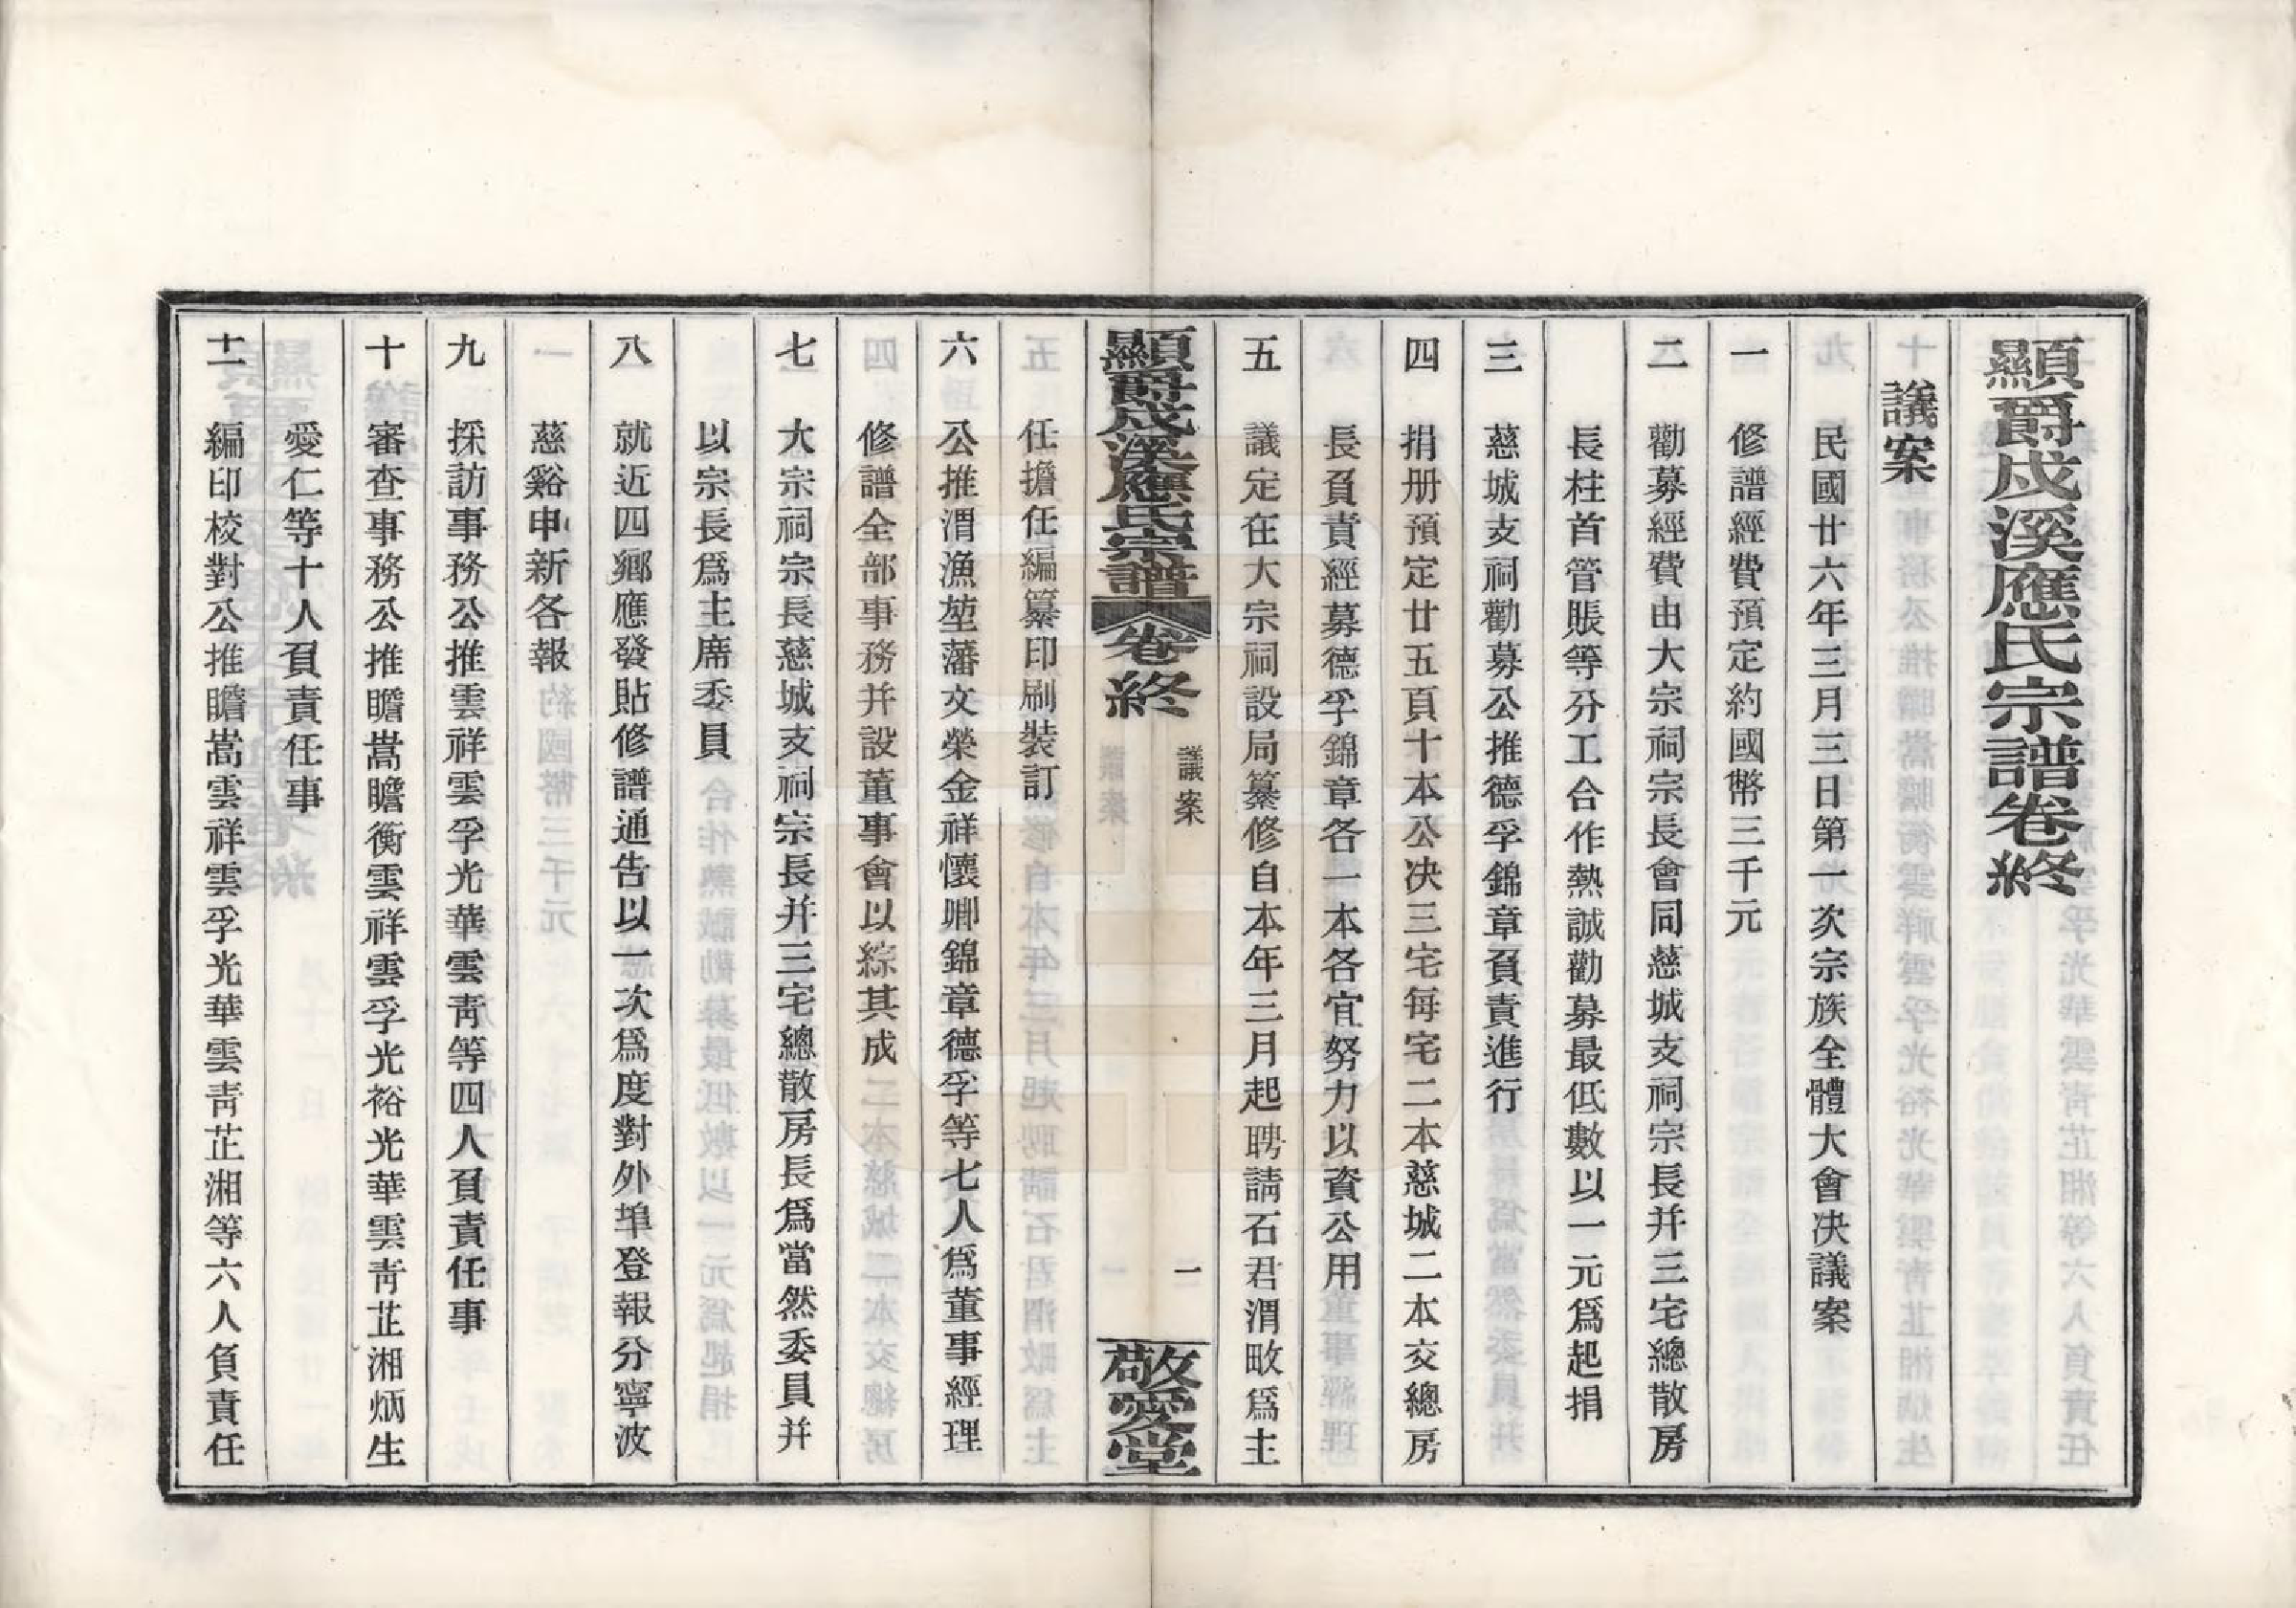 顯爵戍溪應氏宗譜卷終
議案
民國廿六年三月三日第一次宗族全體大會決議案
一 修譜經費預定約國幣三千元
二 勸募經費由大宗祠宗長會同慈城支祠宗長并三宅總散房
長柱首管賬等分工合作熱誠勸募最低數以一元爲起捐
三 慈城支祠勸募公推德孚錦章負責進行
四 捐册預定廿五頁十本公決三宅每宅二本慈城二本交總房
長負責經募德孚錦章各一本各宜努力以資公用
五 議定在大宗祠設局纂修自本年三月起聘請石君渭畋爲主
顯爵戍溪應氏宗譜 卷終 議案 一 敬愛堂
任擔任編纂印刷裝訂
六 公推渭漁堃藩文榮金祥懷卿錦章德孚等七人爲董事經理
修譜全部事務并設董事會以綜其成
七 大宗祠宗長慈城支祠宗長并三宅總散房長爲當然委員并
以宗長爲主席委員
八 就近四鄉應發貼修譜通告以一次爲度對外埠登報分寧波
慈谿申新各報
九 採訪事務公推雲祥雲孚光華雲靑等四人負責任事
十 審查事務公推瞻嵩瞻衡雲祥雲孚光裕光華雲靑芷湘炳生
愛仁等十人負責任事
十一 編印校對公推瞻嵩雲祥雲孚光華雲靑芷湘等六人負責任